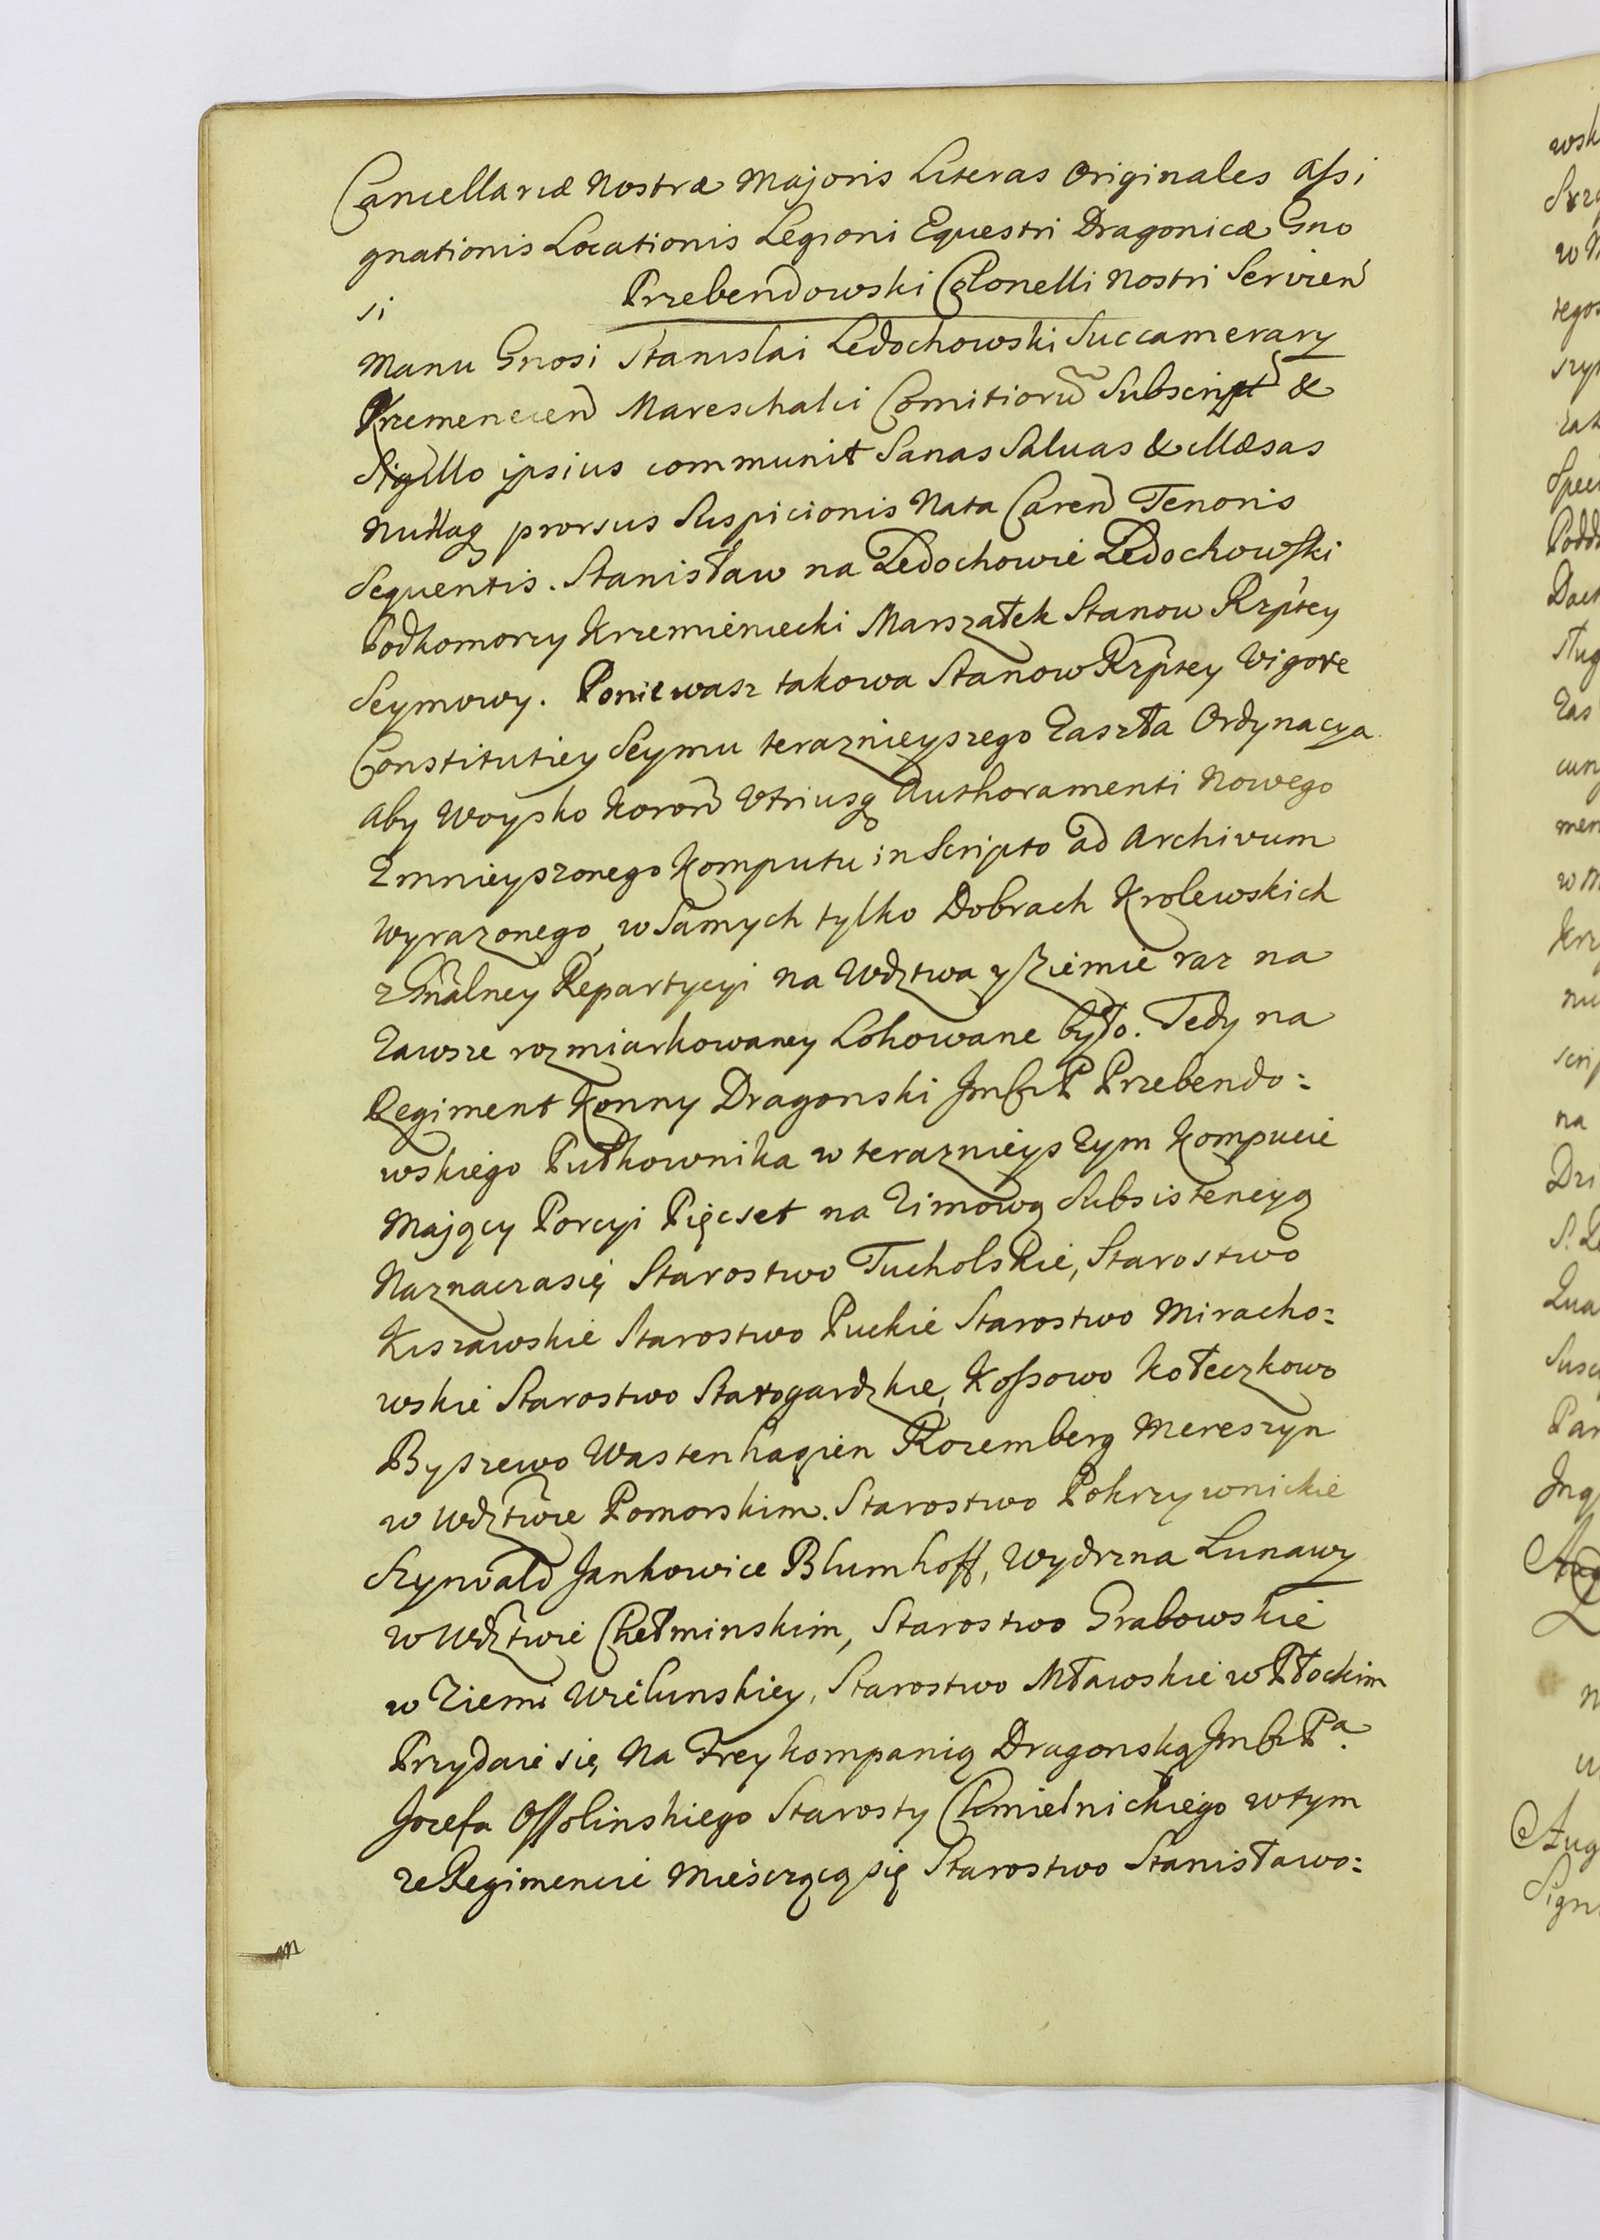 Cancellariæ Nostræ Majoris Literas Originales Assi
gnationis Locationis Legioni Equestri Dragonicæ Gno
si Przebendowski Colonelli Nostri Servien
Manu Gnosi Stanislai Ledochowski Succamerary
Krzemenecen Mareschalci Comitioru Subscript &
Sigillo ipsius communit Sanas Saluas & Illæsas
Nullaq prorsus Suspicionis Nata Caren Tenoris
Sequentis. Stanisław na Ledochowie Ledochowski
Podkomorzy Krzemieniecki Marszałek Stanow Rzptey
Seymowy. Poniewasz takowa Stanow Rzptey Vigore
Constitutiey Seymu teraznieyszego Zaszła Ordynacya
aby Woysko Koron Vtriusq Authoramenti Nowego
Zmnieyszonego Komputu in Scripto ad Archivum
wyrazonego, w Samych tylko Dobrach Krolewskich
z Gnalney Repartycyi na Wdztwa y Ziemie raz na
Zawsze rozmiarkowaney Lokowane było. Tedy na
Regiment Konny Dragonski JmSci P Przebendo:
wskiego Pułkownika w teraznieyszym Kompucie
Mający Porcyi Pięcset na Zimową Subsistencyą
Naznacza się Starostwo Tucholskie, Starostwo
Kiszawskie Starostwo Puckie Starostwo Miracho:
wskie Starostwo Starogardzkie, Kossowo Kołeczkowo
Byszewo Wastenhagien Rozemberg Mereszyn
w Wdztwie Pomorskim. Starostwo Pokrzywnickie
Szynvald Jankowice Blumhoff, Wydrzna Lunawy
w Wdztwie Chełminskim, Starostwo Grabowskie
w Ziemi Wielunskiey, Starostwo Mławskie w Płockim
Przydaie się, Na Freykompanią Dragonską JmSci Pa.
Jozefa Ossolinskiego Starosty Chmielnickiego w tym
ze Regimencie Mieszczącą się Starostwo Stanisławo: